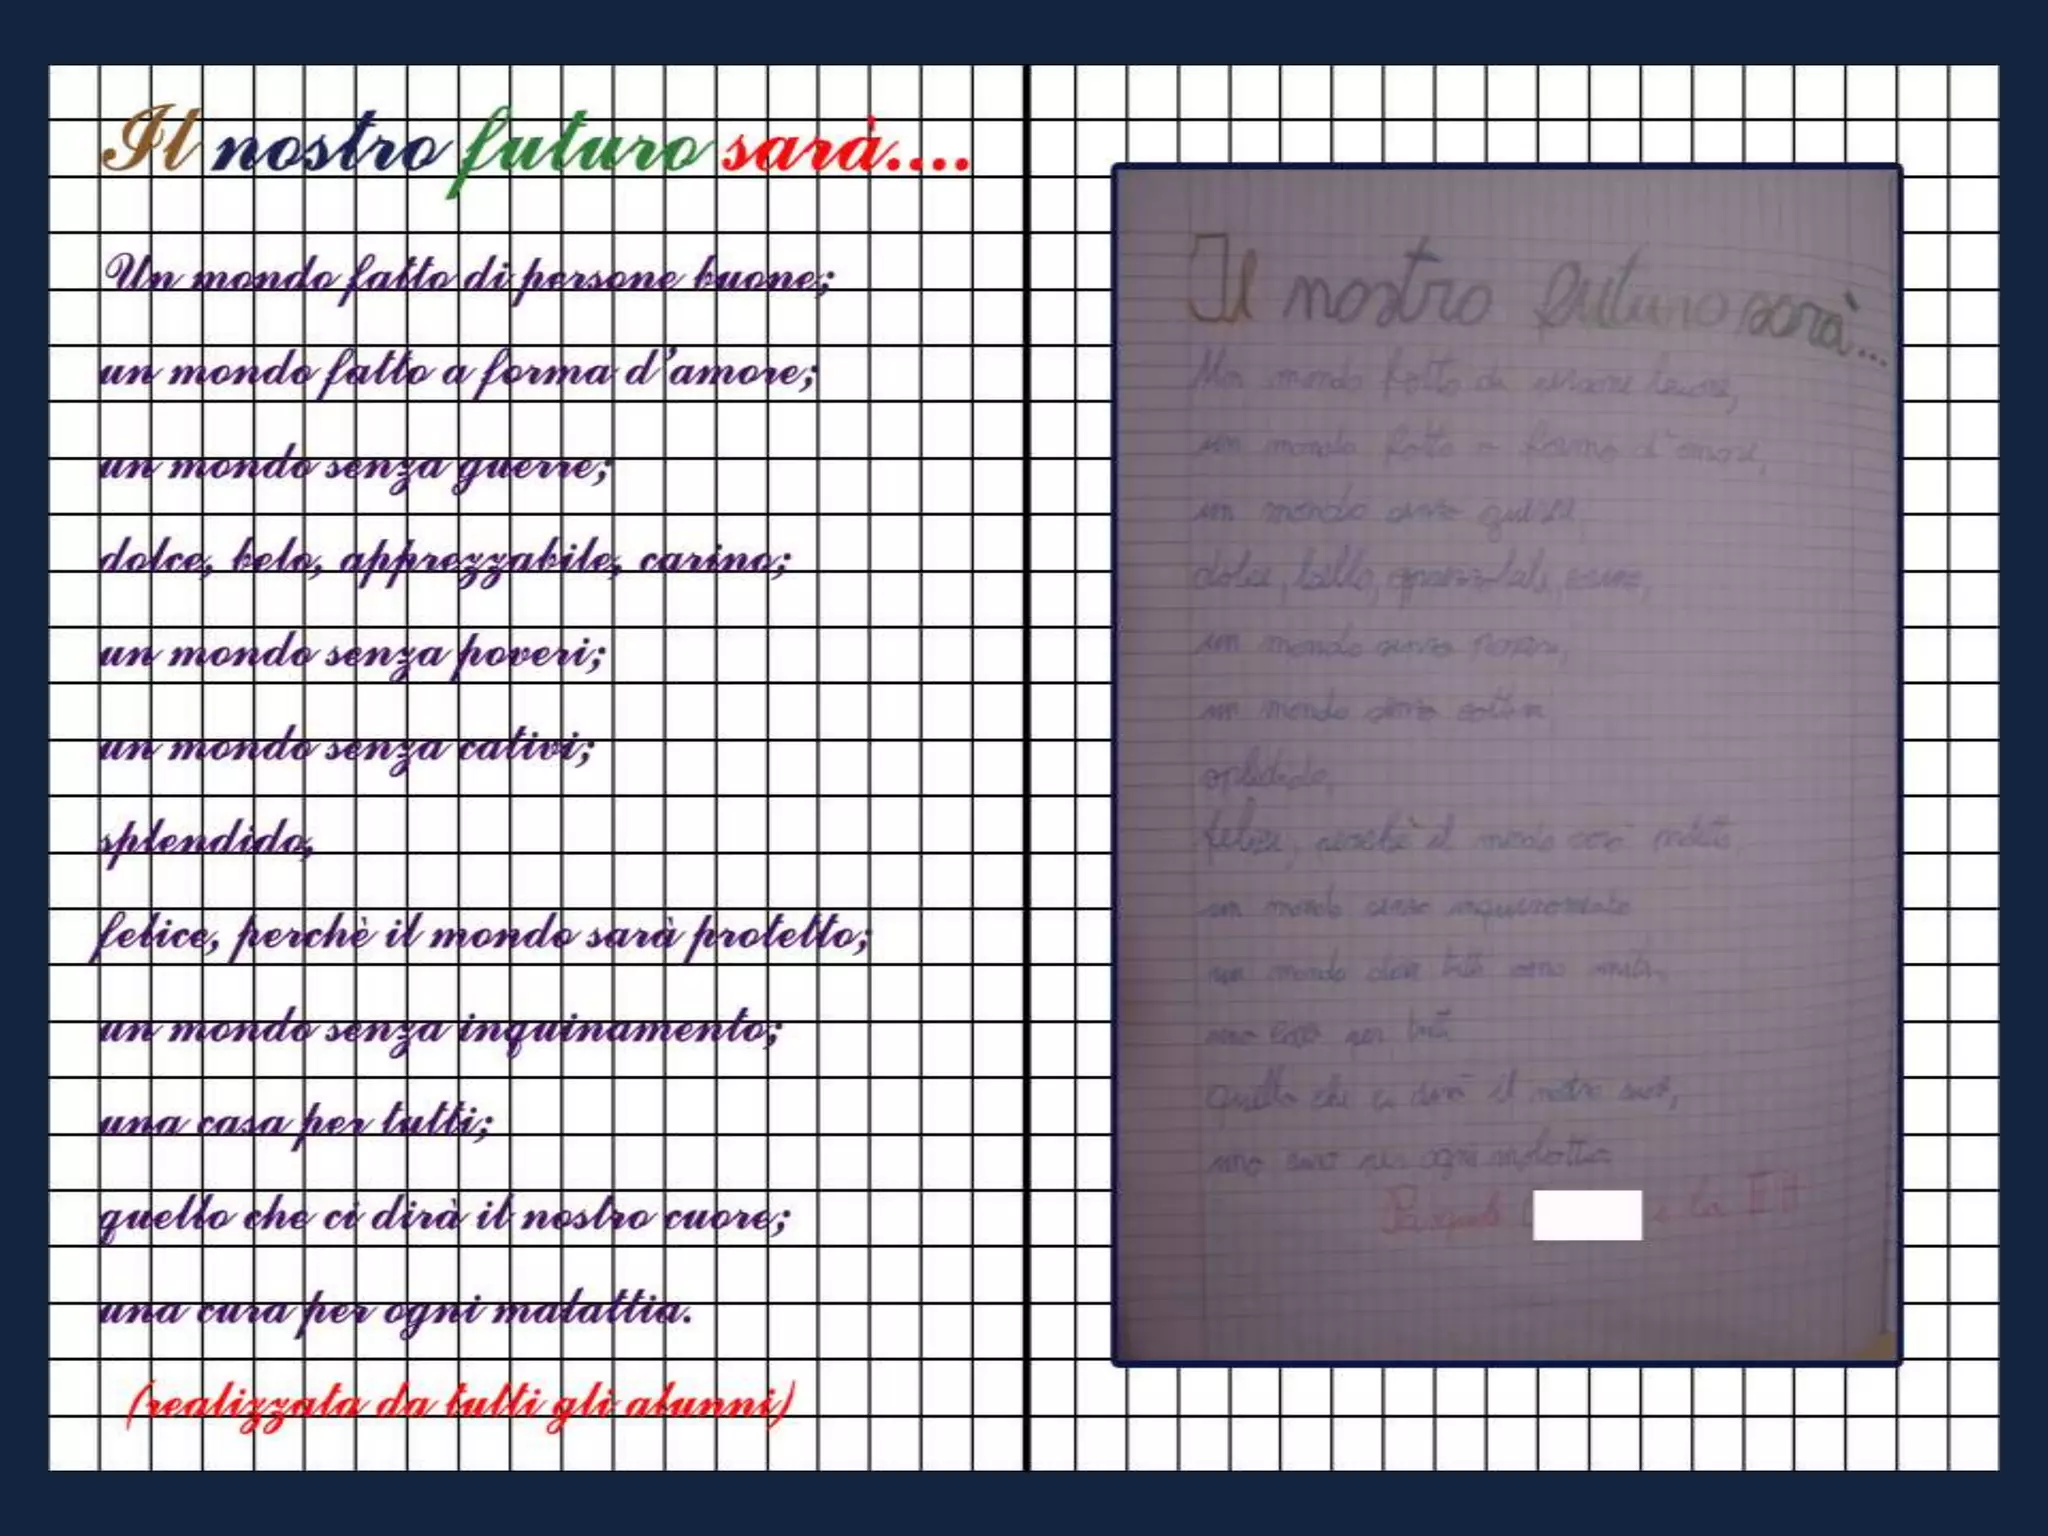 Il nostro futuro sarà....
Un mondo fatto di persone buone;
un mondo fatto a forma d'amore;
un mondo senza guerre;
dolce, belo, apprezzabile, carino;
un mondo senza poveri;
un mondo senza cativi;
splendido,
felice, perchè il mondo sarà protetto;
un mondo senza inquinamento;
una casa per tutti;
quello che ci dirà il nostro cuore;
una cura per ogni malattia.
(realizzata da tutti gli alunni)
Il nostro futuro sarà...
un mondo fatto di
un mondo fatto a forma d'amore,
un mondo senza
un mondo senza
un mondo senza
felice, perchè il mondo sarà
un mondo senza inquinamento
un mondo tutti sono
una casa per tutti
quello che ci dirà il nostro
una cura per ogni malattia
e la